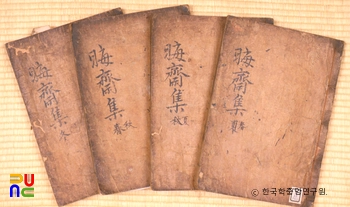 晦齋集
晦齋集
晦齋集
晦齋集
PUNC
ⓒ 한국학중앙연구원